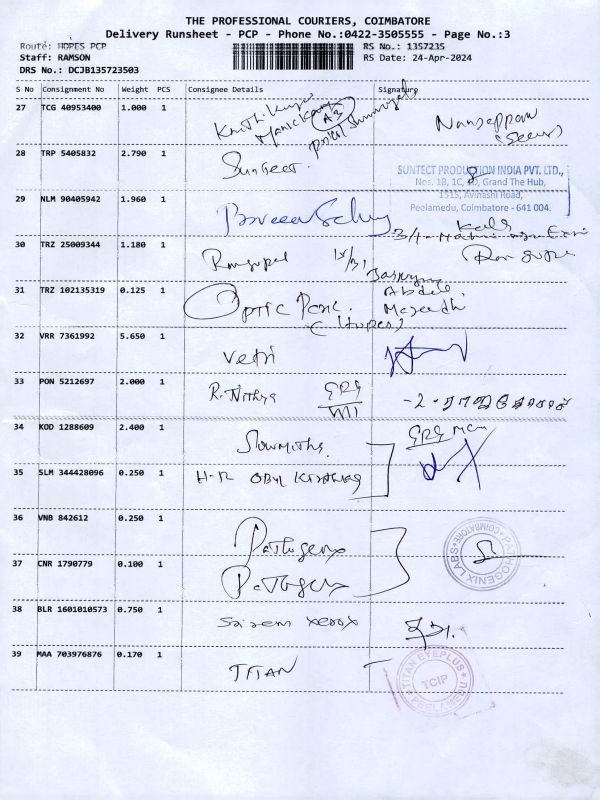 THE PROFESSIONAL COURIERS, COIMBATORE
Delivery Runsheet - PCP - Phone No.:0422-3505555 - Page No.:3
Route: HOPES PCP
RS No.: 1357235
Staff: RAMSON
RS Date: 24-Apr-2024
DRS No.: DCJB135723503
S No Consignment No Weight PCS Consignee Details Signature
27 TCG 40953400 1.000 1
28 TRP 5405832 2.790 1 Suntect.
SUNTECT PRODUCTION INDIA PVT. LTD.,
Nos. 1B, 1C, 1D, Grand The Hub,
1515, Avinashi Road,
Peelamedu, Coimbatore - 641 004.
29 NLM 90405942 1.960 1
30 TRZ 25009344 1.180 1 Ramgopal
31 TRZ 102135319 0.125 1 Optic Park. Abdul
(Hopes)
32 VRR 7361992 5.650 1 Vetri
33 PON 5212697 2.000 1 R. Nithya
34 KOD 1288609 2.400 1 Sowmitha
35 SLM 344428096 0.250 1
36 VNB 842612 0.250 1 Pathogenix
37 CNR 1790779 0.100 1 Pathogenix
PATHOGENIX LABS
COIMBATORE
38 BLR 1601010573 0.750 1 Sairam xerox
39 MAA 703976876 0.170 1 TITAN
TITAN EYEPLUS
TCIP
PEELAMEDU